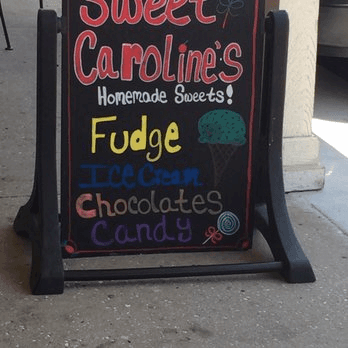 Sweet
Caroline's
Homemade Sweets!
Fudge
Ice Cream
Chocolates
Candy